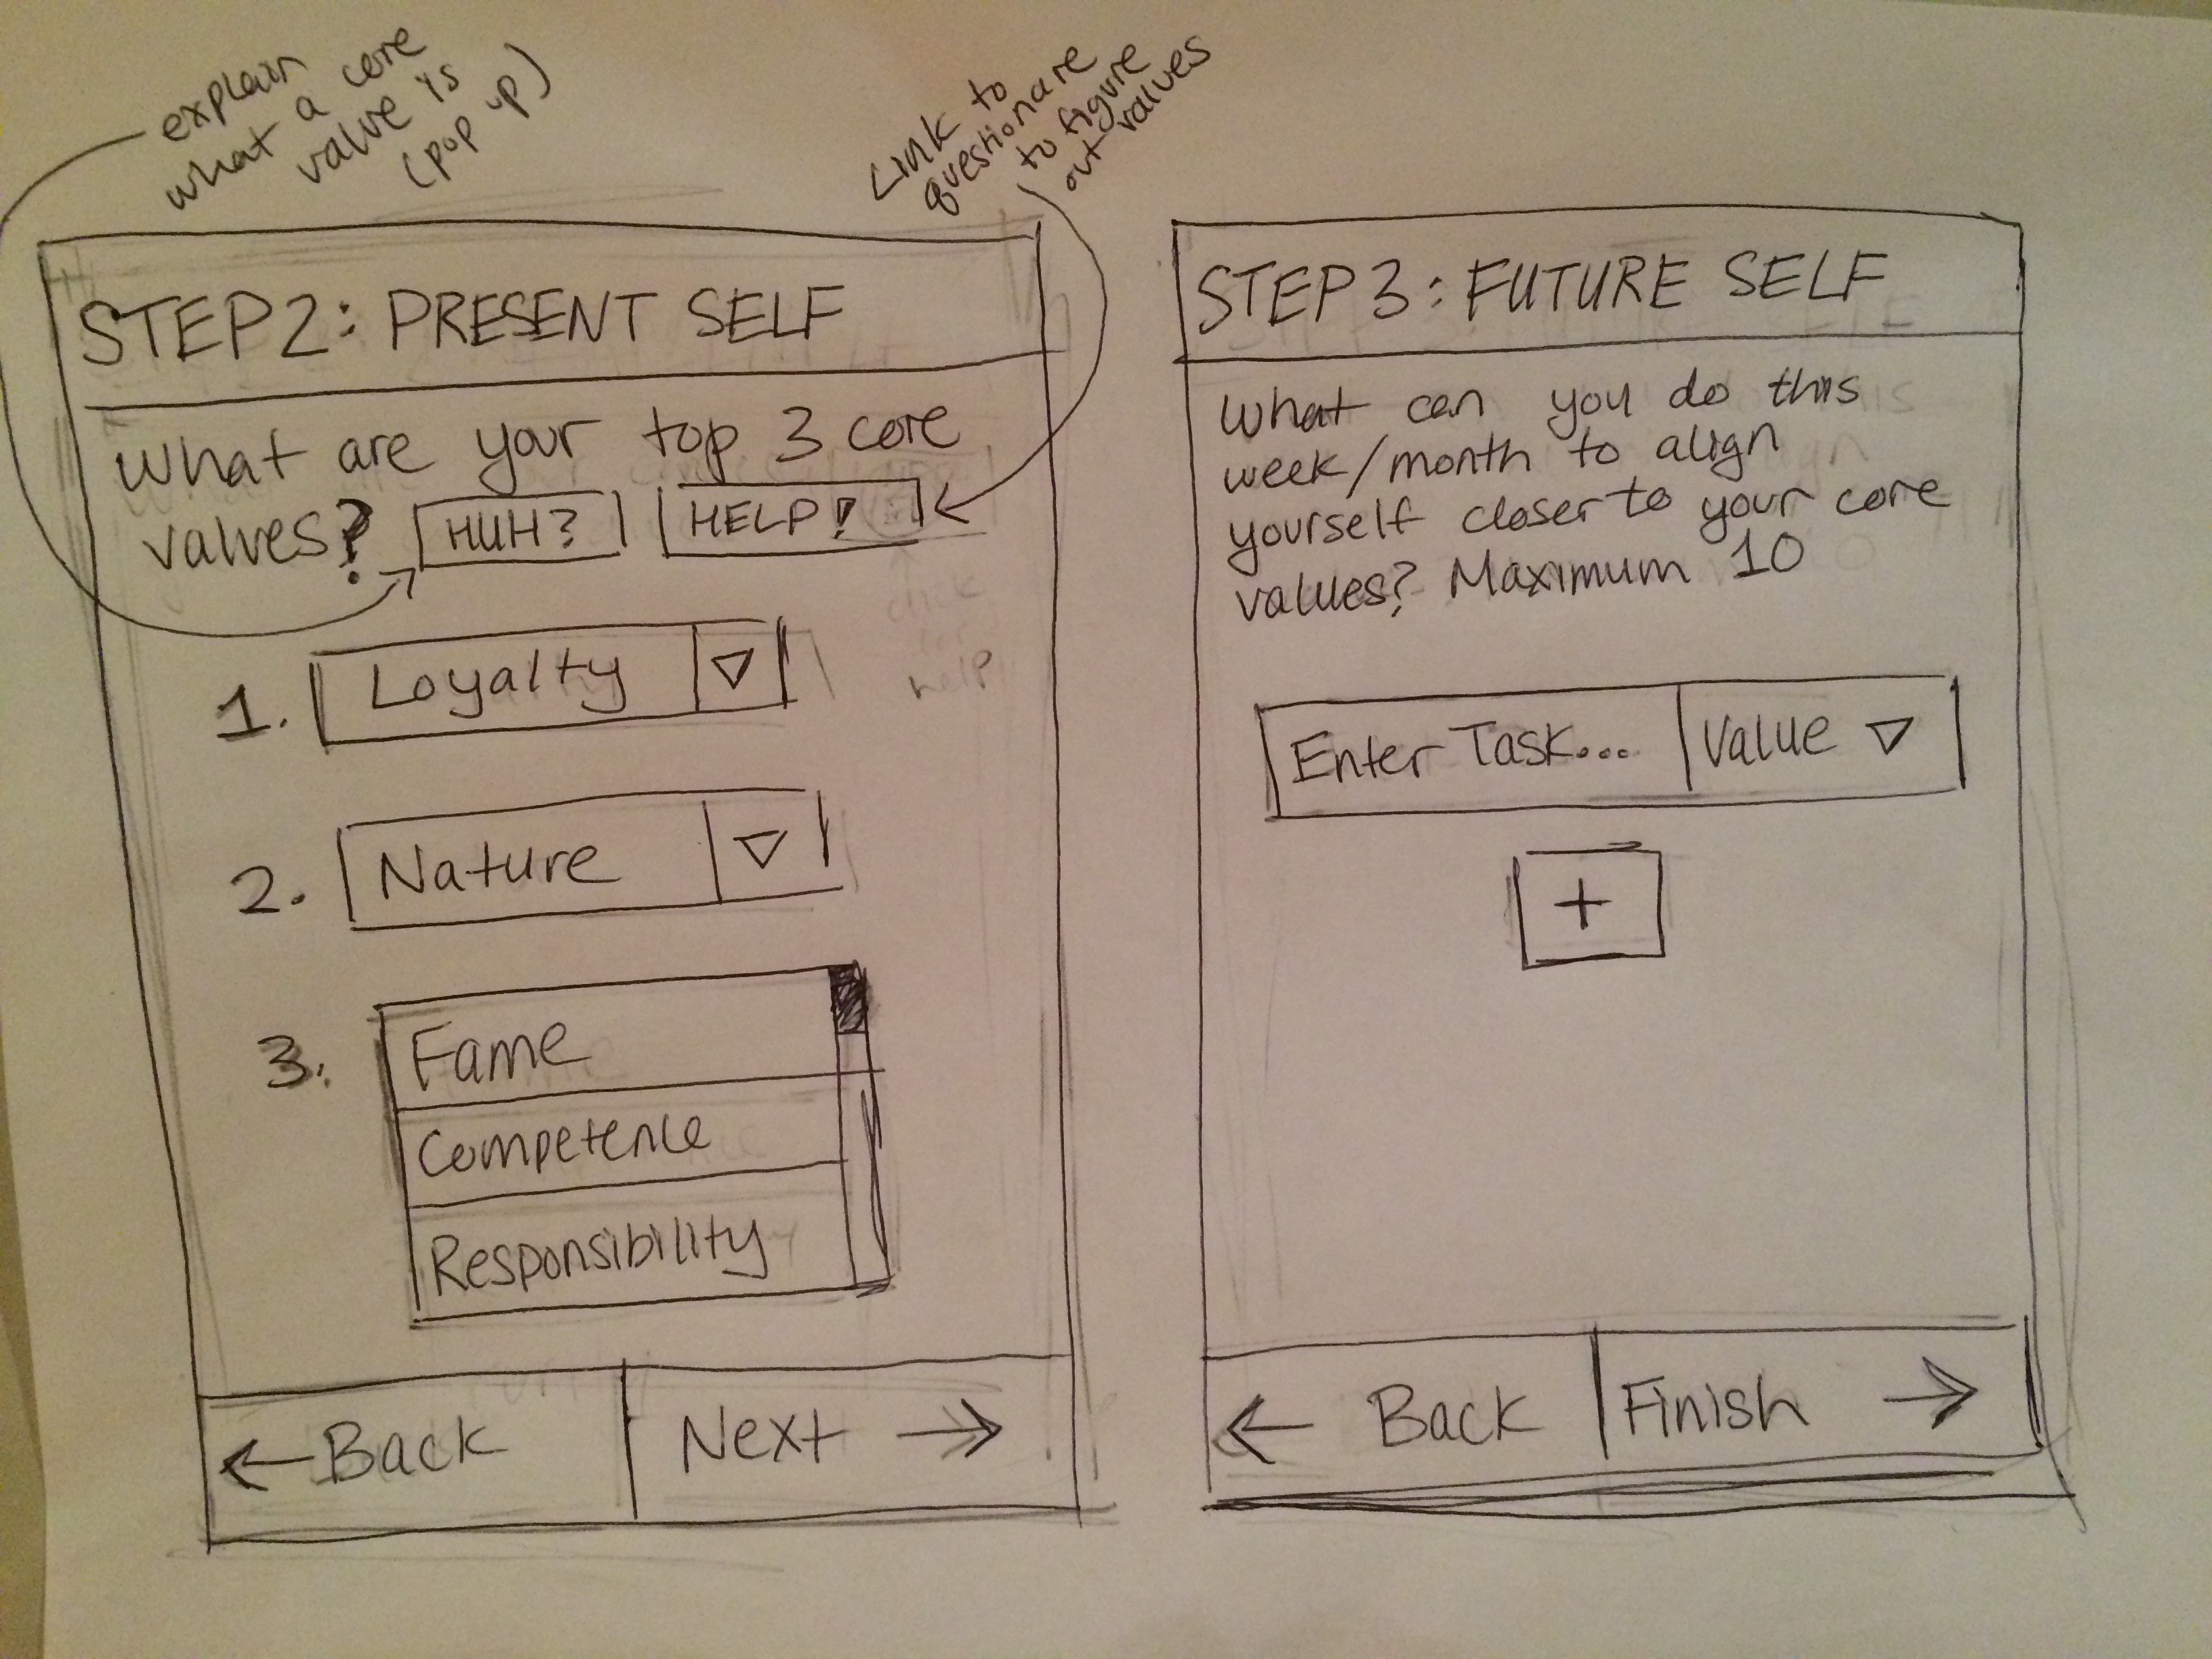 explain
what a core
value is
(pop up)
Link to
questionare
to figure
out values
STEP 2: PRESENT SELF
What are your top 3 core
values? HUH? HELP!
help
1. Loyalty
2. Nature
3. Fame
Competence
Responsibility
← Back Next →
STEP 3: FUTURE SELF
What can you do this
week/month to align
yourself closer to your core
values? Maximum 10
Enter Task... Value
+
← Back Finish →